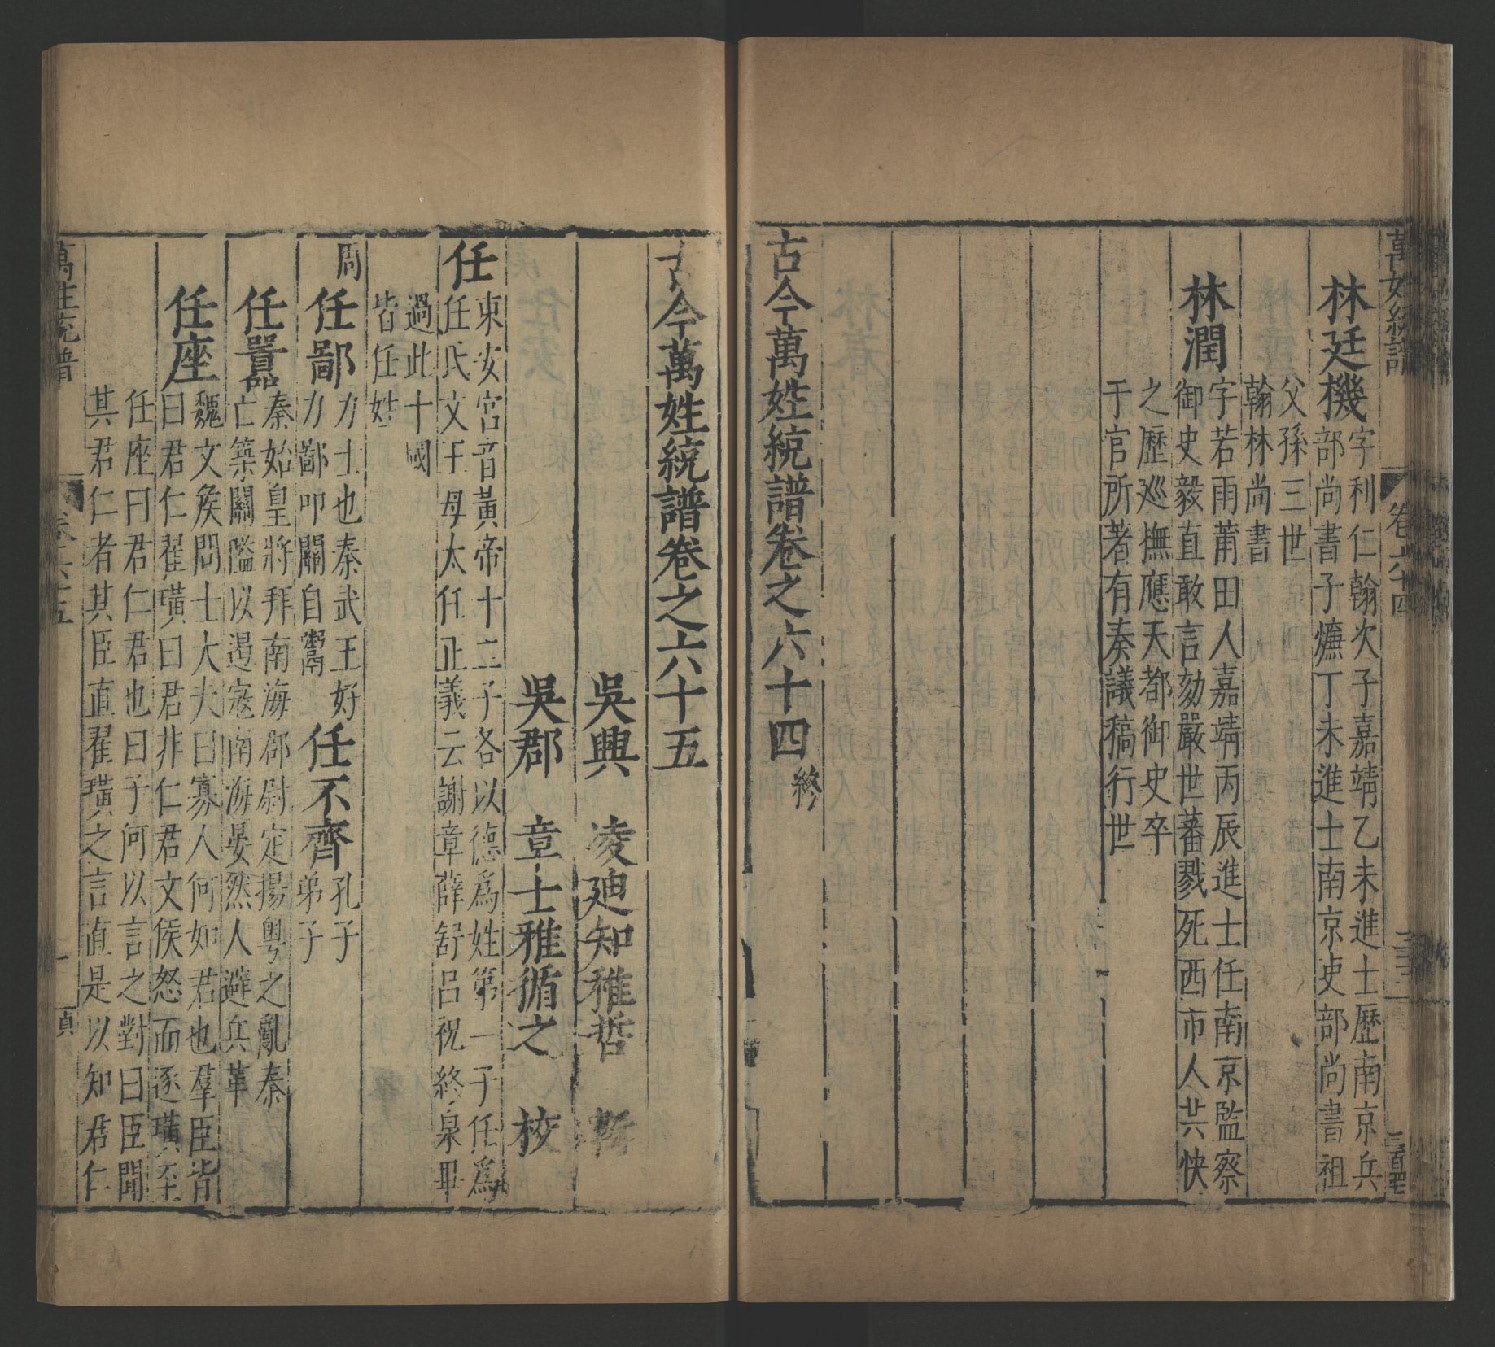 林廷機
字利仁翰次子嘉靖乙未進士歷南京兵
部尚書子燫丁未進士南京吏部尚書祖
父孫三世
翰林尚書
林潤
字若雨莆田人嘉靖丙辰進士任南京監察
御史毅直敢言劾嚴世蕃戮死西市人共快
之歷巡撫應天都御史卒
于官所著有奏議稿行世
古今萬姓統譜卷之六十四終
卷六十四
古今萬姓統譜卷之六十五
吳興 凌廸知稚哲
吳郡 章士雅循之 校
任
東安宮音黃帝十二子各以德為姓第一子任為
任氏文王母太任正義云謝章薛舒呂祝終泉畢
過此十國
皆任姓
周
任鄙
力士也秦武王好
力鄙叩關自鬻
任不齊
孔子
弟子
任囂
秦始皇將拜南海郡尉定揚粵之亂秦
亡築關隘以遏寇南海晏然人避兵革
任座
魏文侯問士大夫曰寡人何如君也羣臣皆
曰君仁翟璜曰君非仁君文侯怒而逐璜至
任座曰君仁君也曰子何以言之對曰臣聞
其君仁者其臣直翟璜之言直是以知君仁
萬姓統譜